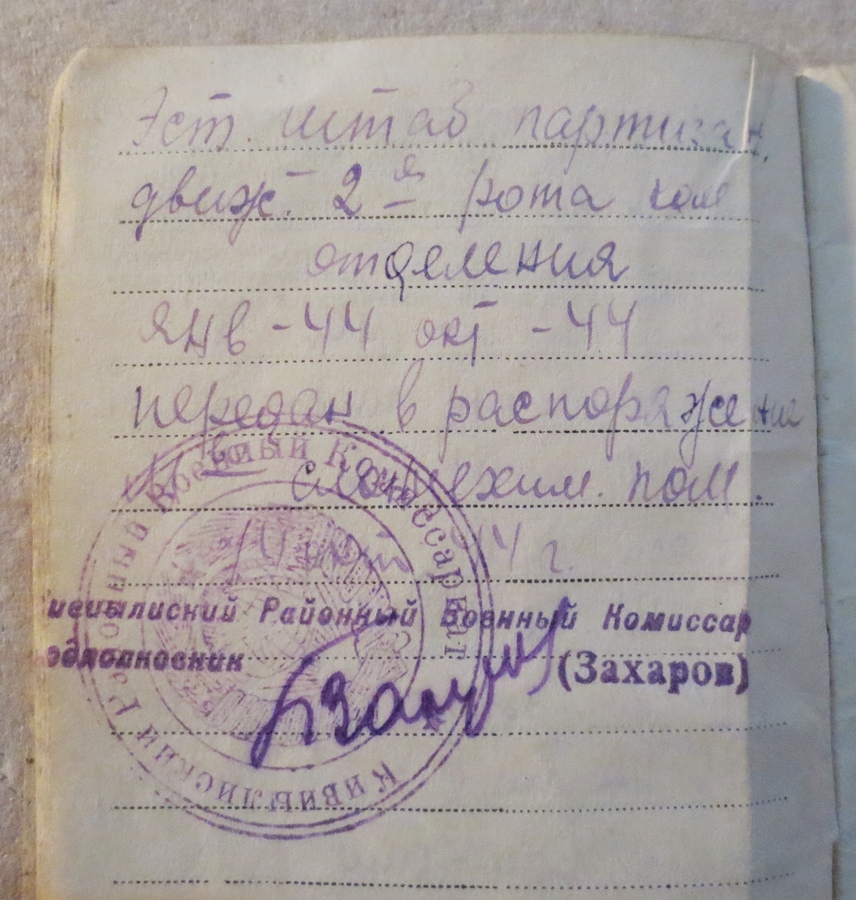 Эст. штаб партизан.
движ. 2-я рота ком
отделения
янв-44 окт-44
передан в распоряжение
пом.
44 г.
Кивиылиский Районный Военный Комиссариат
ивиылиский Районный Военный Комиссар
одполковник
(Захаров)